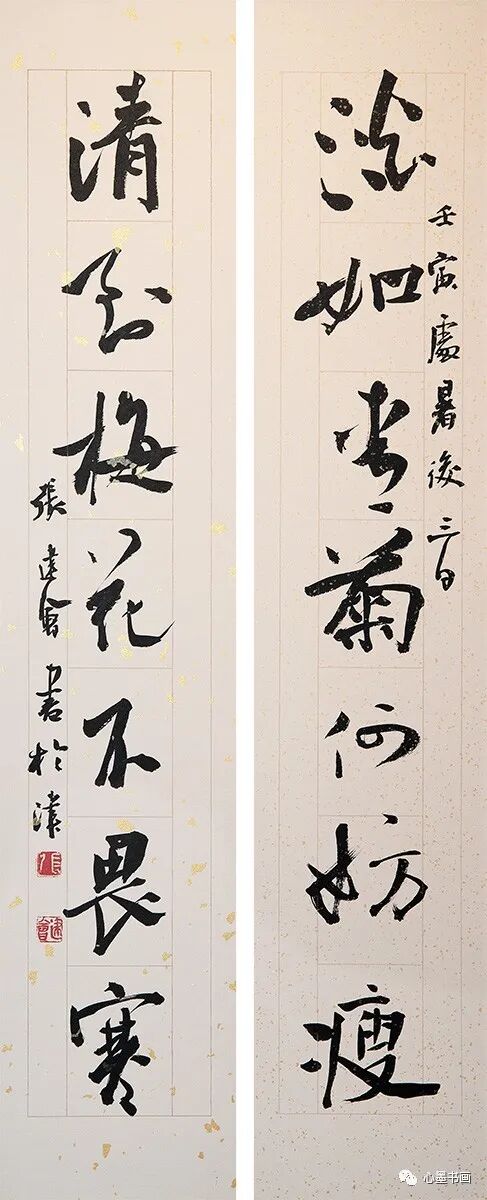 壬寅處暑後三日
淡如秋菊何妨瘦
清到梅花不畏寒
張建會書於津
張
建會
心墨书画